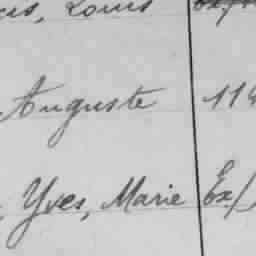 Louis
Auguste 114
Yves, Marie Ex/